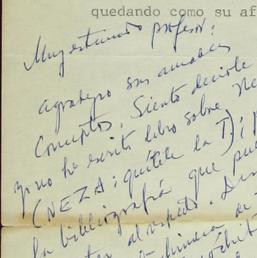 quedando como su af
Muy estimado profesor:
agradezco sus amables
conceptos. Siento decirle
yo no he escrito libro sobre Ne
(NEZA: quítele la T)
la bibliografía que pue
al respeto.
de